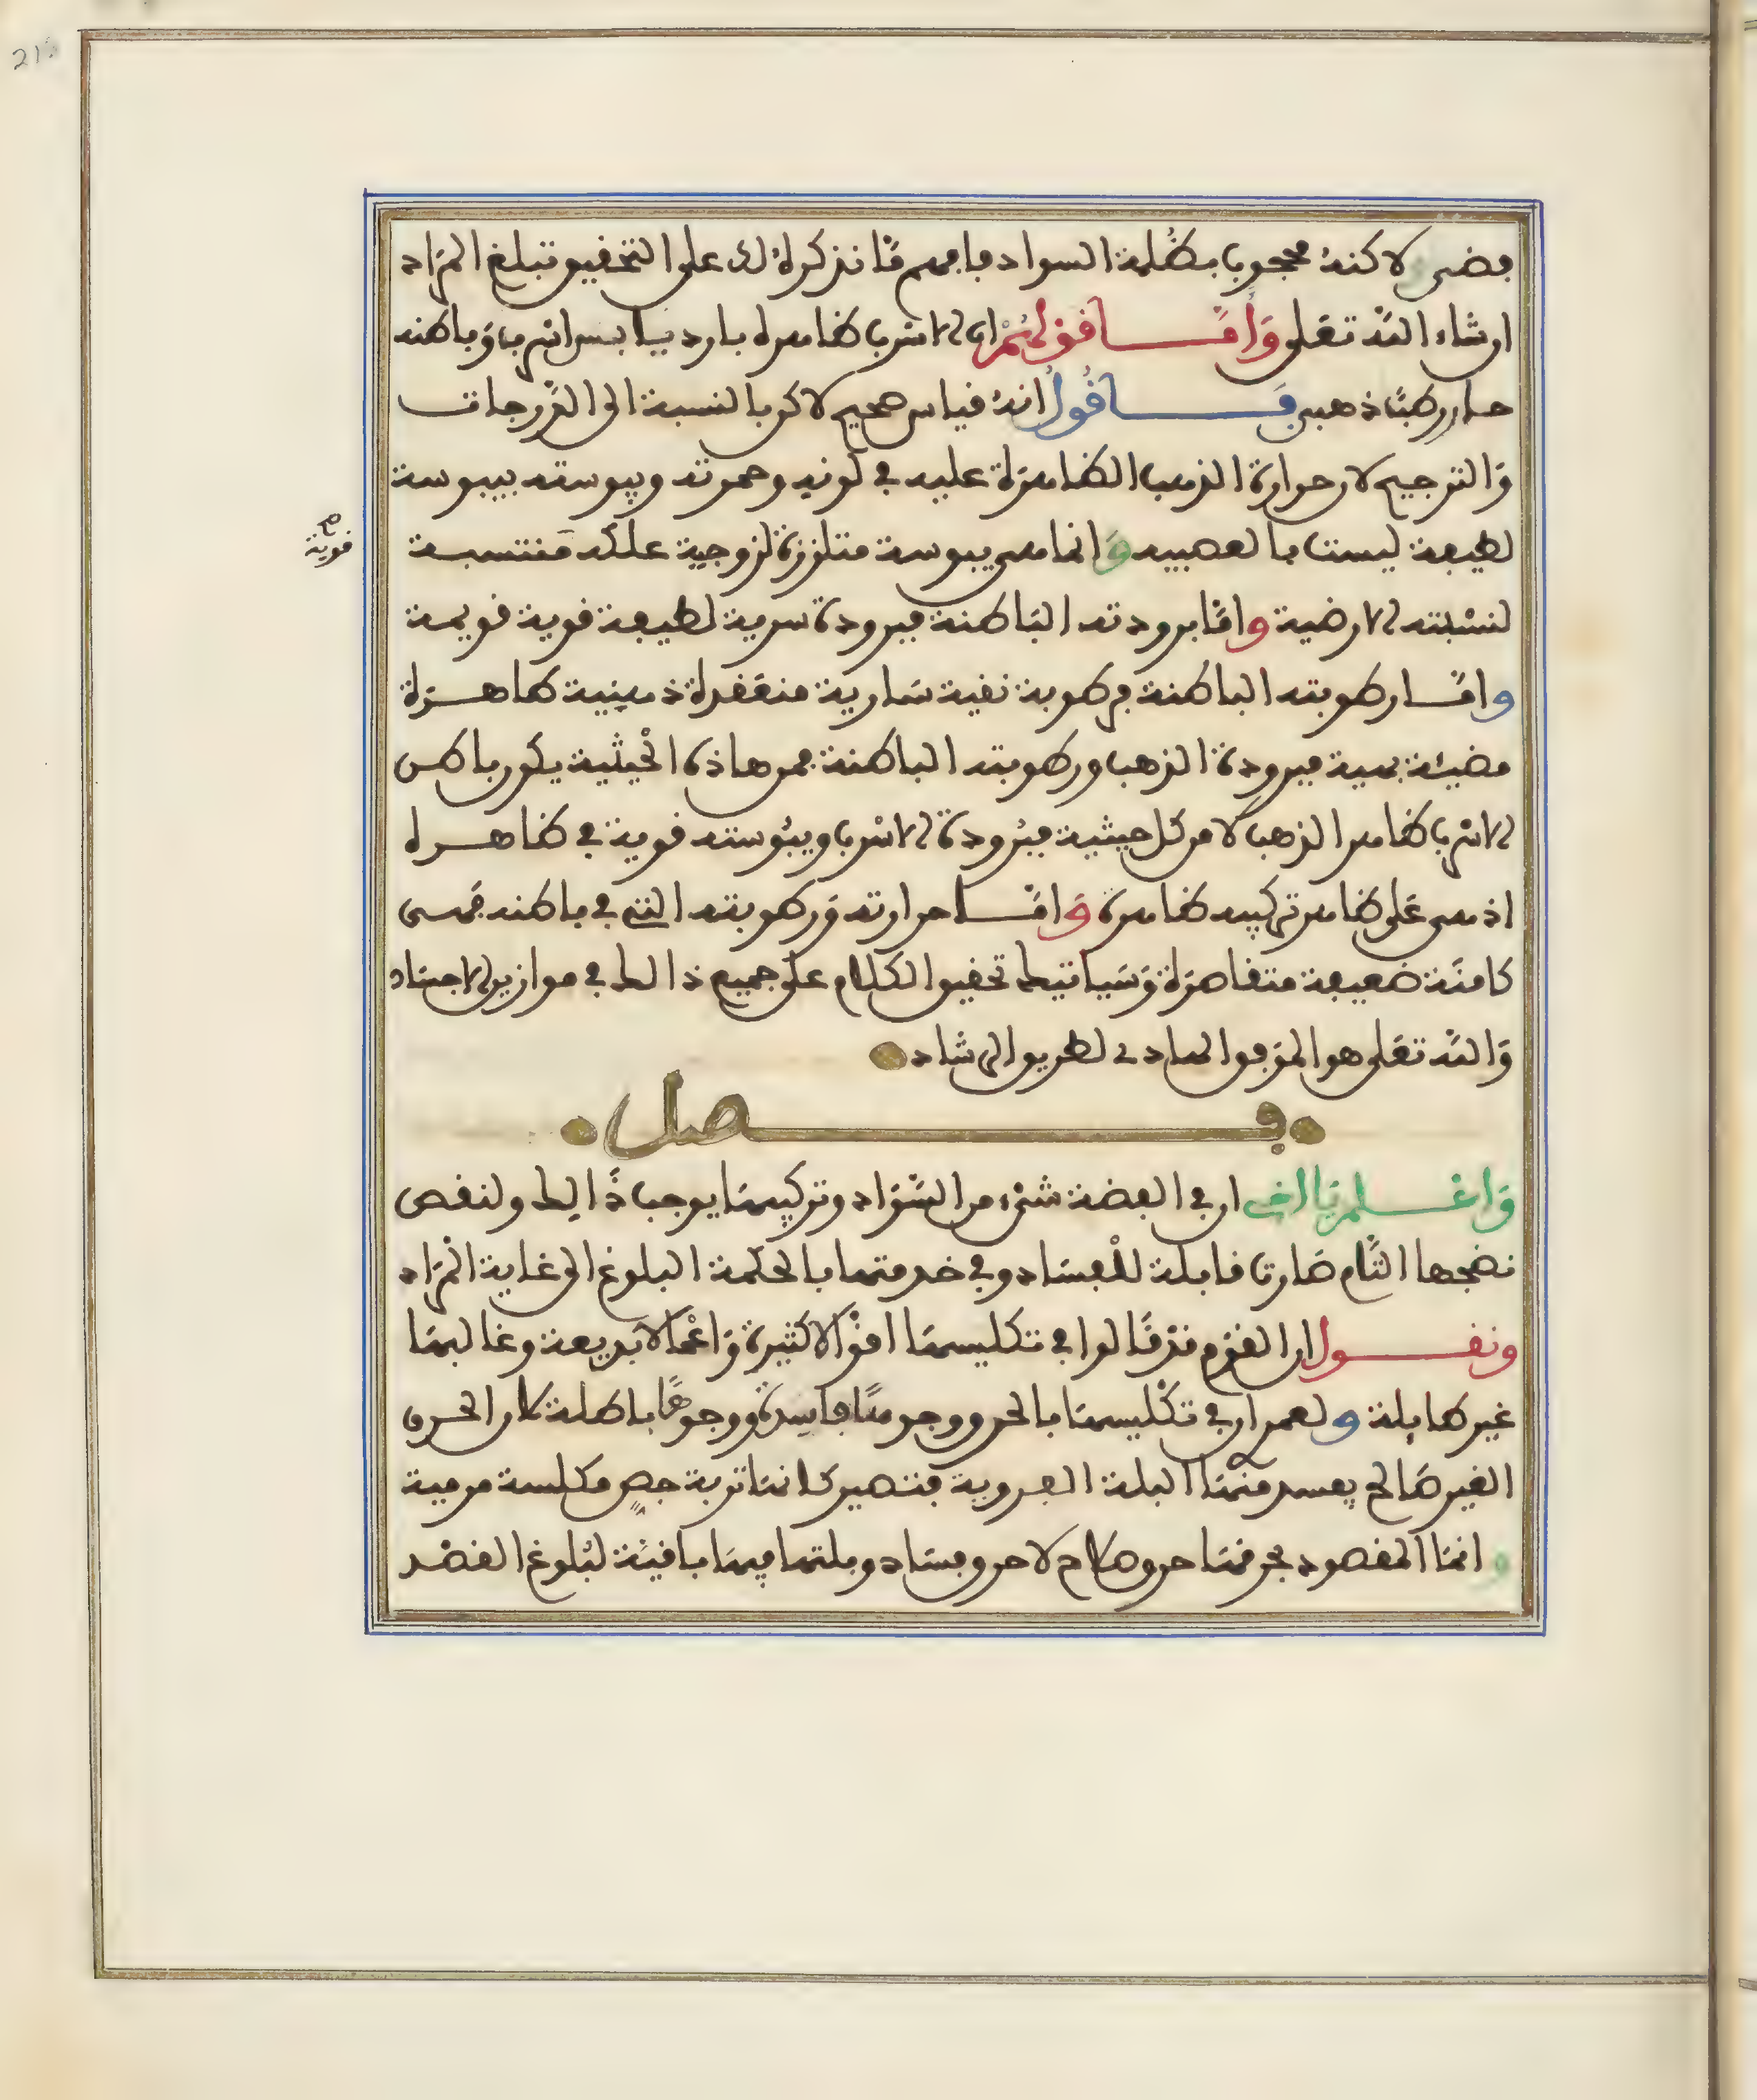 فضي لاكنه محجوب بظلمة السواد فافهم ما نذكره لك على التحقيق تبلغ المراد
ان شاء الله تعلى وأما قولهم ان الاسرب ظاهره بارد يابس اسرب وباطنه
حار رطب ذهبي فأقول انه قياس صحيح لاكن بالنسبة الى الدرجات
والترجيح لان حرارة الذهب الظاهرة عليه في لونه وحمرته ويبوسته بيبوسة
لطيفة ليست بالعصبية وانما هي يبوسة متلززة لزوجية علكه منتسبة
لنسبته الارضية واما برودته الباطنة فبرودة سرية لطيفة قوية قويمة
واما رطوبته الباطنة فرطوبة نقية سارية منعقدة ذهبية طاهرة
مضيئة بهية فبرودة الذهب ورطوبته الباطنة فمن هاذه الحيثية يكون باطن
الاسرب ظاهر الذهب لا من كل حيثية فبرودة الاسرب ويبوسته قوية في ظاهره
اذ هي على ظاهر تركيبه ظاهرة واما حرارته ورطوبته التي في باطنه فهي
كامنة ضعيفة متقاصرة وسياتيك تحقيق الكلام على جميع ذالك في موازين الاجساد
والله تعلى هو الموفق الهادي لطريق الرشاد
فصل
واعلم يا اخي ان في الفضة شيء من السواد وتركيبها يوجب ذالك ولنقص
نضجها التام صارت قابلة للفساد وفي خدمتها بالحكمة البلوغ الى غاية المراد
ونقول ان القوم قد قالوا في تكليسها اقوالا كثيرة واعمالا بديعة وغالبها
غير طايلة ولعمر ان في تكليسها بالحرق وجوها فاسدة ووجوها باطلة لان الحرق
الغير صالح يفسد منها البلة الفروية فتصير كانها تربة جص مكلسة مرمية
وانما المقصود حرقها حرق صلاح لا حرق فساد وبلتها فيها باقية لبلوغ القصد
قوية صح